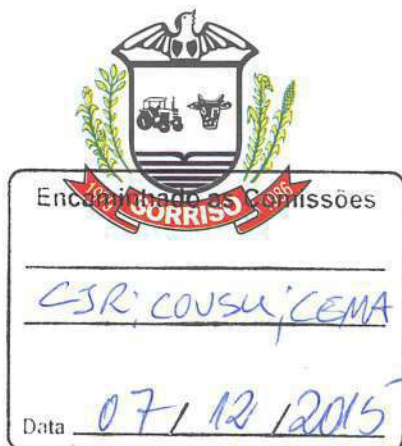 Encaminhado as Comissões
1979 SORRISO 1986
CJR; COVSU; CEMA
Data 07/12/2015